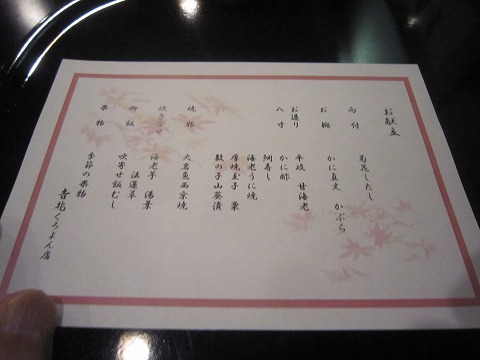 お献立
向付 菊花したし
お椀 かに真丈 かぶら
お造り 平政 甘海老
八寸 かに酢
鯛寿し
海老うに焼
厚焼玉子 栗
数の子山葵漬
焼物 大岩魚西京焼
炊き合せ 海老芋 湯葉
法蓮草
御飯 吹寄せ飯むし
果物 季節の果物
くろよん店